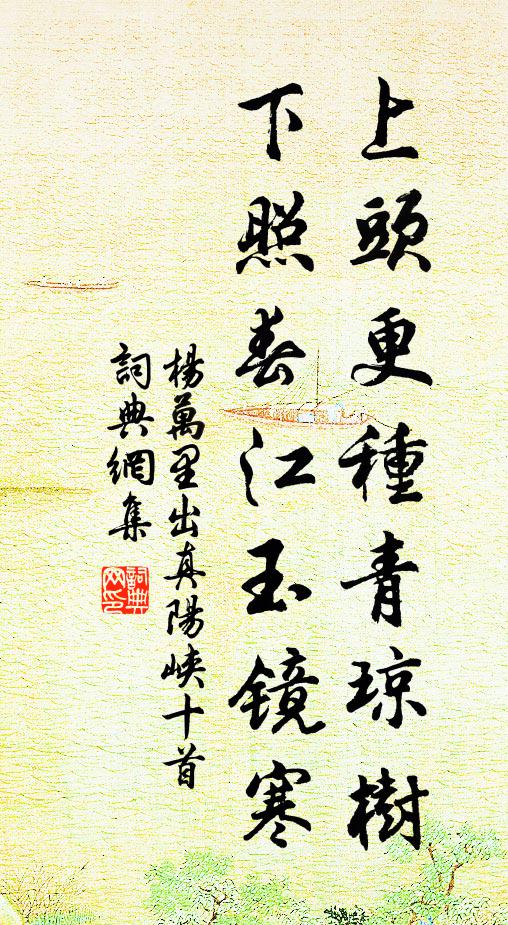 上頭更種青琼樹
下照春江玉镜寒
楊萬里出真陽峡十首
詞典網集
詞典
网印